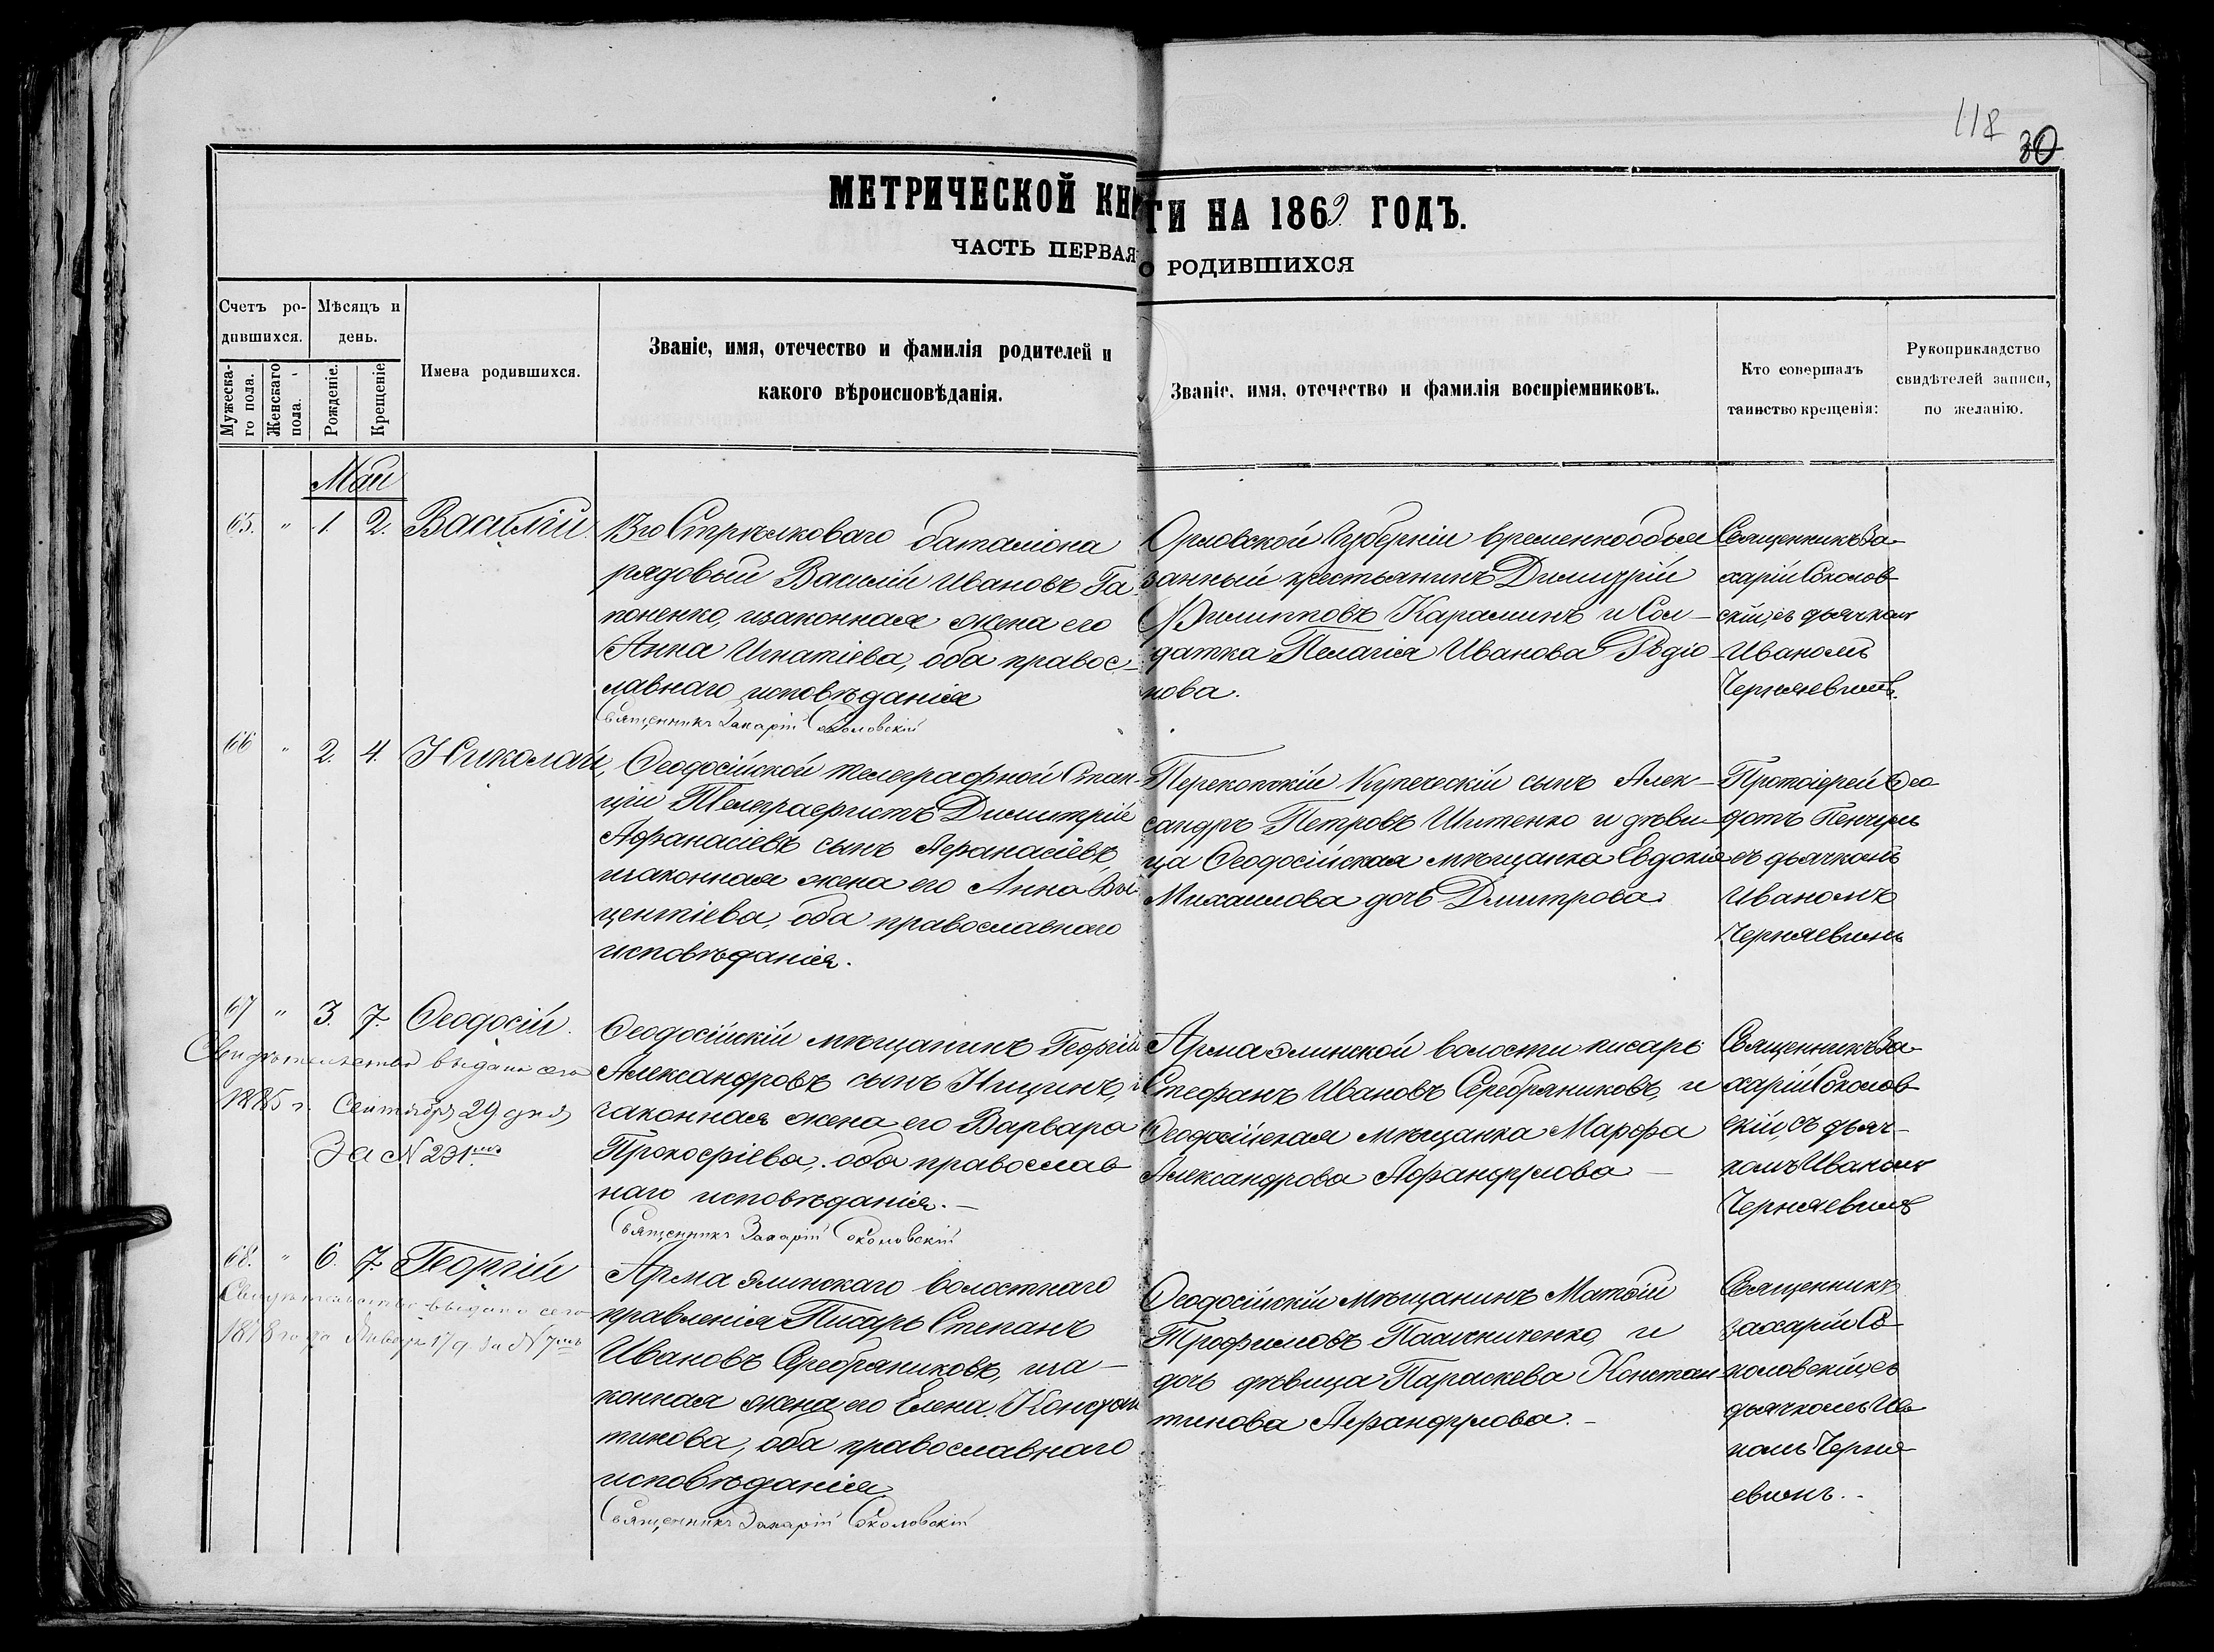 118
30
МЕТРИЧЕСКОЙ КНИГИ НА 1869 ГОДЪ.
ЧАСТЬ ПЕРВАЯ О РОДИВШИХСЯ
Счетъ ро-
дившихся.
Мужеска-
го пола.
Женскаго
пола.
Мѣсяцъ и
день.
Рожденіе.
Крещеніе
Имена родившихся.
Званіе, имя, отечество и фамилія родителей и
какого вѣроисповѣданія.
Званіе, имя, отечество и фамилія воспріемниковъ.
Кто совершалъ
таинство крещенія:
Рукоприкладство
свидѣтелей записи,
по желанію.
Май
65. " 1. 2. Василій.
13го Стрѣлковаго баталіона
рядовый Василій Ивановъ Га-
поненко, изаконная жена его
Анна Игнатіева, оба правос-
лавнаго исповѣданія
Священникъ Захарій Соколовскій
Орловской Губерніи временнообяз
занный крестьянинъ Димитрій
Филипповъ Караминъ и Сол-
датка Пелагія Иванова Рѣдіо
нова.
Священникъ За-
харій Соколов-
скій, съ дьячкомъ
Иваномъ
Черняевимъ.
66 " 2. 4. Николай,
Ѳеодосійской телеграфной Стан-
ціи Телеграфистъ Димитрій
Афанасіевъ сынъ Афанасіевъ,
изаконная жена его Анна Ви
центіева, оба православнаго
исповѣданія.
Перекопскій Купеческій сынъ Алек-
сандръ Петровъ Шитенко и дѣви-
ца Ѳеодосійская мѣщанка Евдокія
Михаилова дочь Дмитрова.
Протоіерей Ѳео-
дотъ Пенчуль
съ дьячкомъ
Иваномъ
Черняевимъ
67 " 3. 7. Ѳеодосій.
Свидѣтельство выдано сего
1885 г. Сентября 29 дня
За № 231мъ
Ѳеодосійскій мѣщанинъ Георгій
Александровъ сынъ Ницинъ, и
законная жена его Варвара
Прокофіева, оба православ
наго исповѣданія.-
Священникъ Захарій Соколовскій
Арма элинской волости писарь
Стефанъ Ивановъ Серебряниковъ, и
Ѳеодосійская мѣщанка Марфа
Александрова Афандулова -
Священникъ За-
харій Соколов-
скій, съ дьяч-
комъ Иваномъ
Черняевимъ
68. " 6. 7. Георгій
Свидѣтельство выдано сего
1878 года Января 17 д. за № 7мъ
Арма элинскаго волостнаго
правленія Писарь Степанъ
Ивановъ Серебряниковъ, иза-
конная жена его Елена Констан
тинова, оба православнаго
исповѣданія
Священникъ Захарій Соколовскій
Ѳеодосійскій Мѣщанинъ Матвій
Трофимовъ Палиниченко, и
дочь дѣвица Параскева Констан-
тинова Афандулова.-
Священникъ
Захарій Со-
коловскій, съ
дьячкомъ Ива
номъ Черня-
евимъ.-